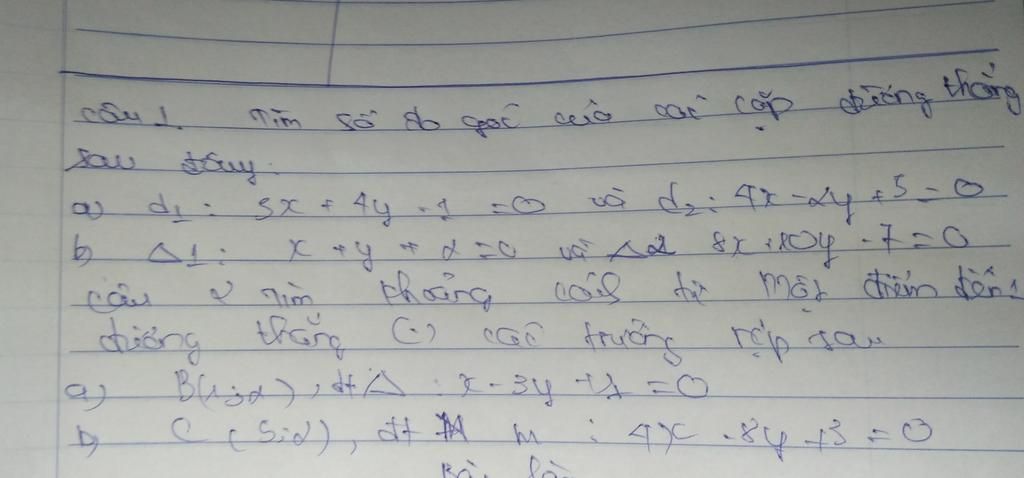 câu 1. Tìm số đo góc của các cặp đường thẳng
sau đây.
a) d1 : 3x + 4y - 1 = 0 và d2 : 4x - 2y + 5 = 0
b) Δ1 : x + y + 2 = 0 và Δ2 8x + 10y - 7 = 0
câu 2 Tìm khoảng cách từ một điểm đến 1
đường thẳng (i) các trường hợp sau
a) B(1;2), đt Δ : x - 3y + 1 = 0
b) C (5;2), đt m : 4x - 8y + 3 = 0
Bài